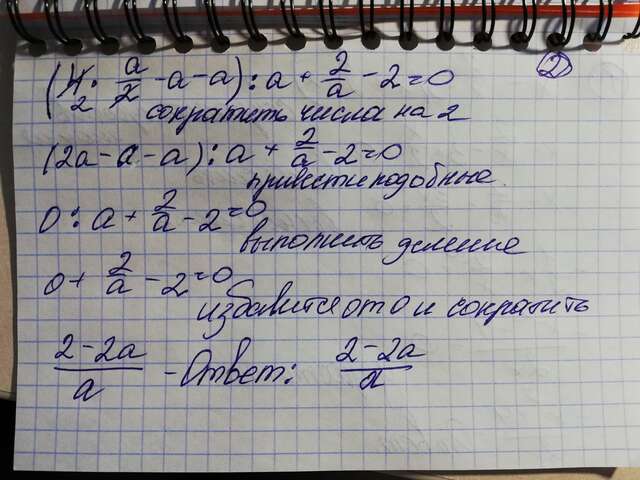 ②
(4 · a/2 - a - a) : a + 2/a - 2 = 0
2
сократить числа на 2
(2a - a - a) : a + 2/a - 2 = 0
привести подобные
0 : a + 2/a - 2 = 0
выполнить деление
0 + 2/a - 2 = 0
избавится от 0 и сократить
2 - 2a/a - Ответ: 2 - 2a/a